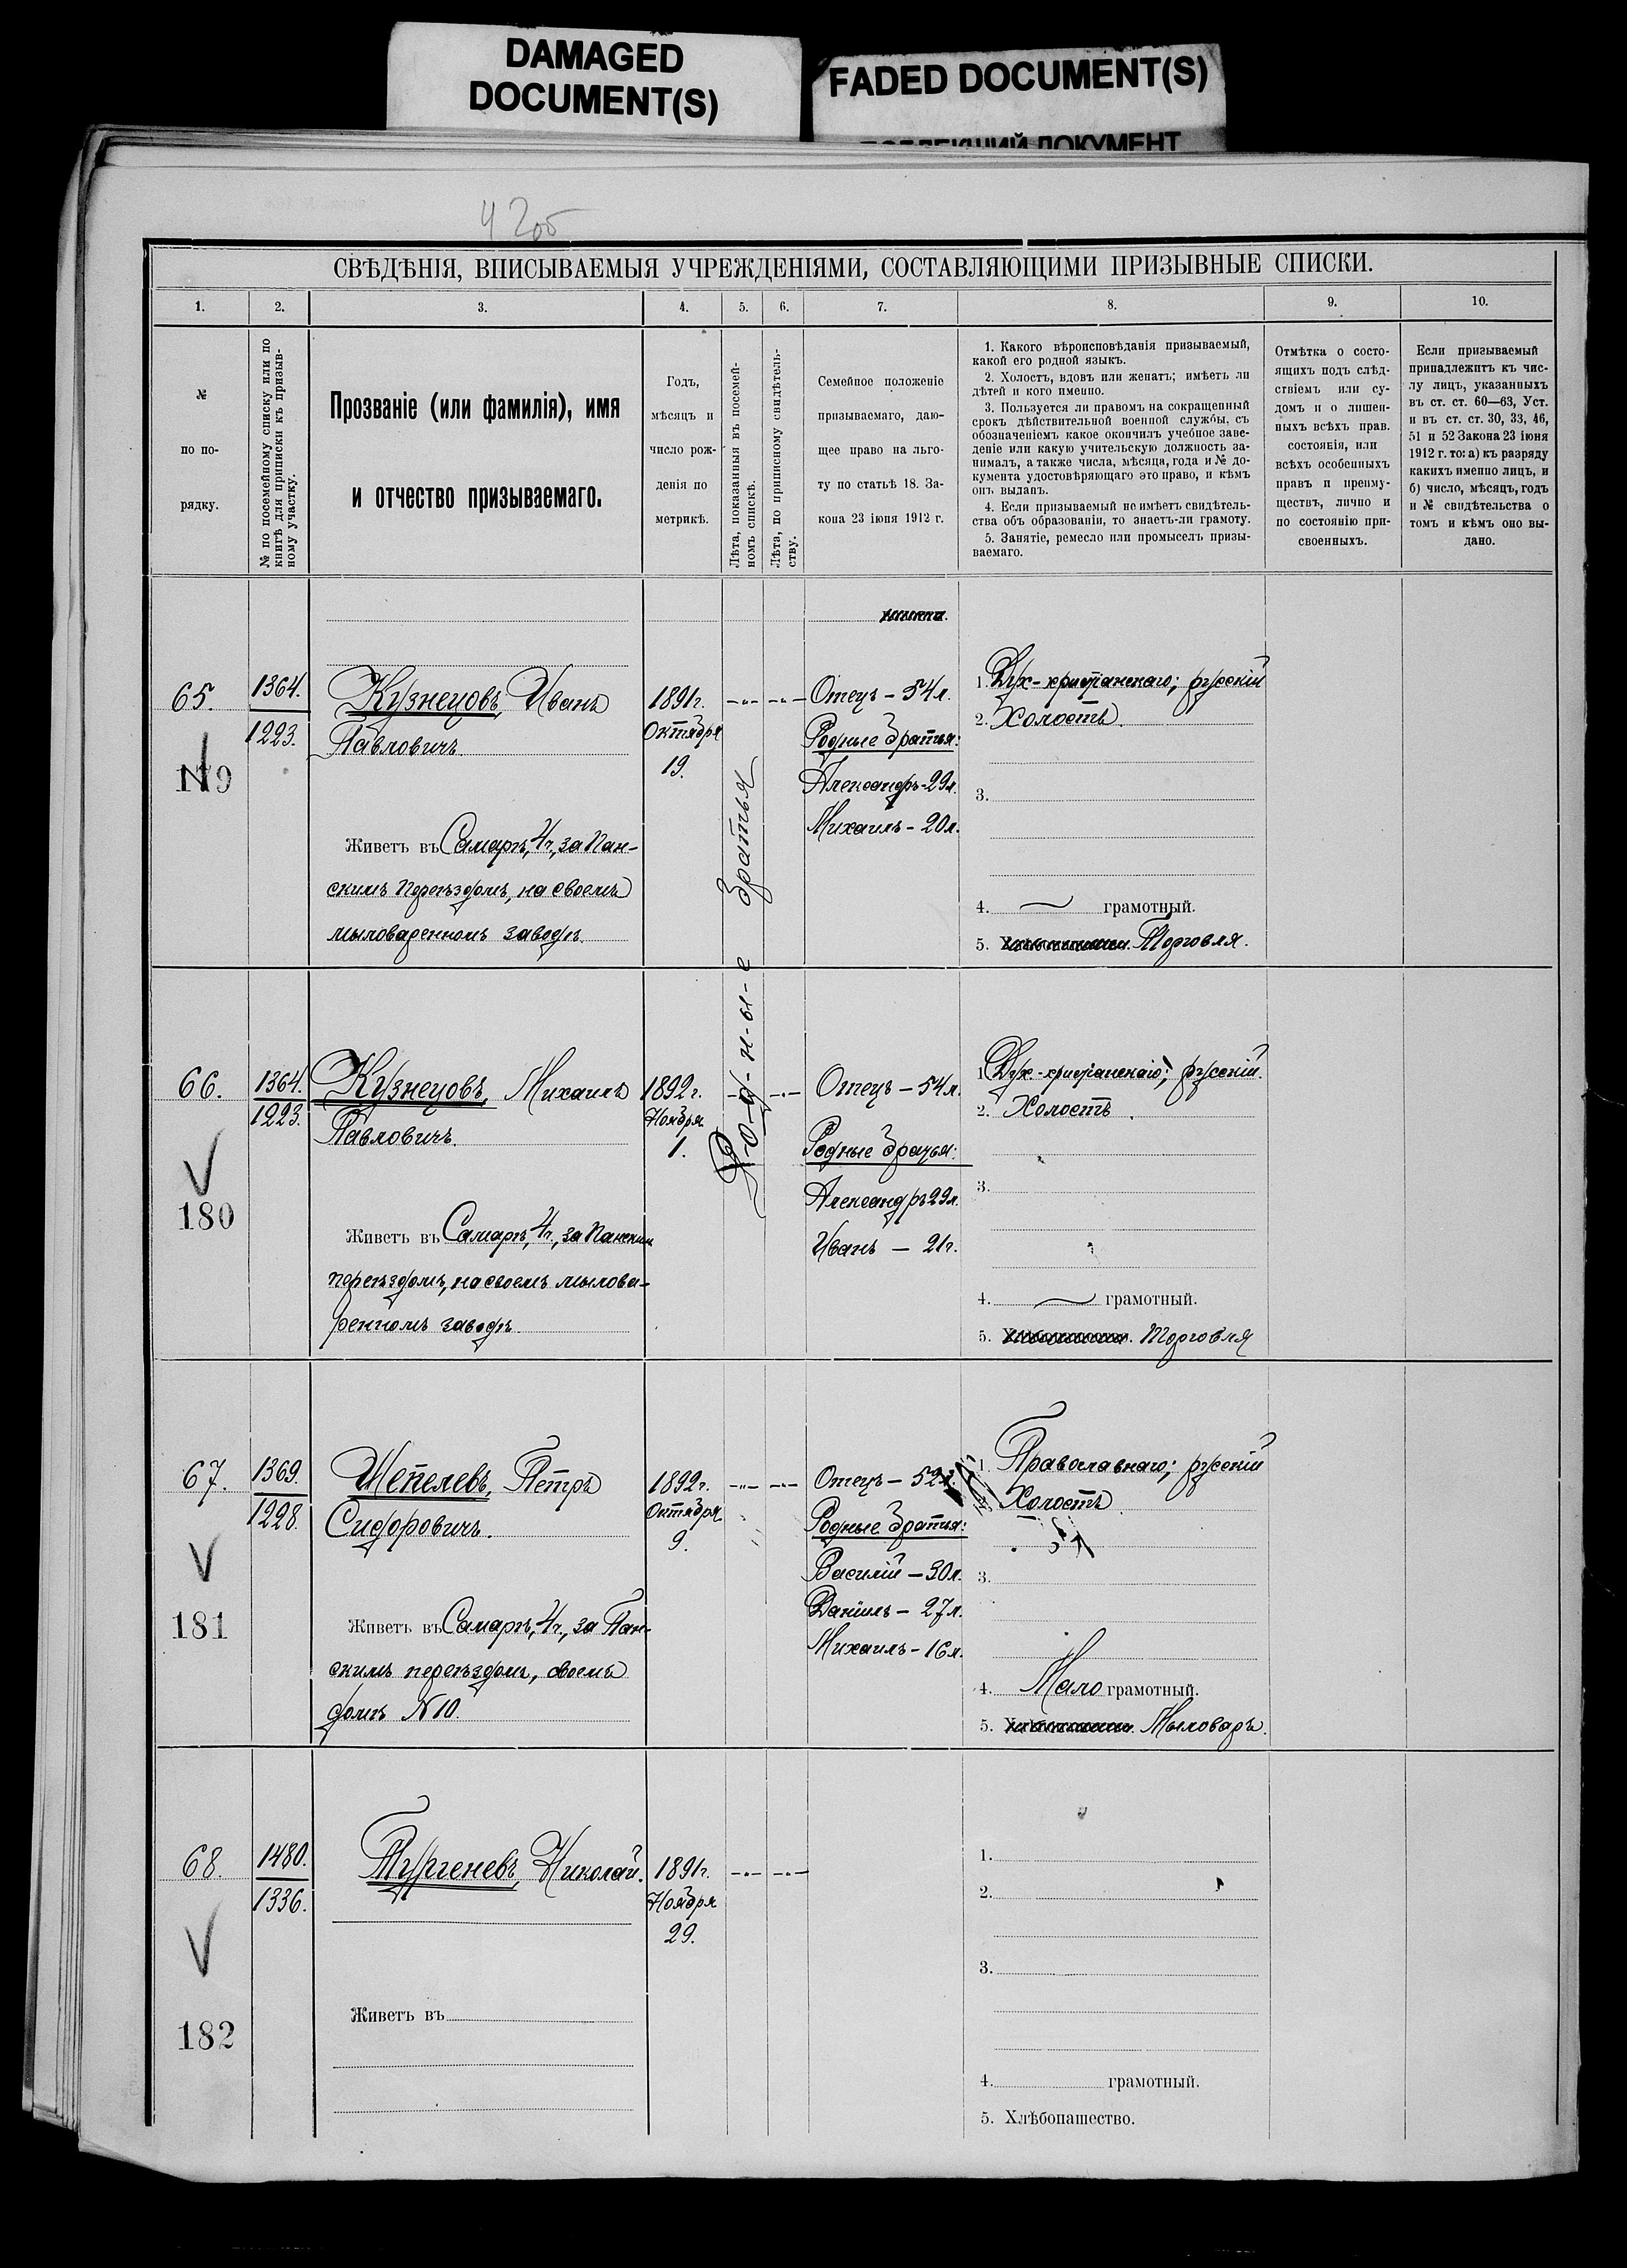 DAMAGED
DOCUMENT(S)
FADED DOCUMENT(S)
42об
СВѢДѢНІЯ, ВПИСЫВАЕМЫЯ УЧРЕЖДЕНІЯМИ, СОСТАВЛЯЮЩИМИ ПРИЗЫВНЫЕ СПИСКИ.
1. 2. 3. 4. 5. 6. 7. 8. 9. 10.
№
по по-
рядку.
№ по посемейному списку или по
книгѣ для приписки къ призыв-
ному участку.
Прозваніе (или фамилія), имя
и отчество призываемаго.
Годъ,
мѣсяцъ и
число рож-
денія по
метрикѣ.
Лѣта, показанныя въ посемей-
номъ спискѣ.
Лѣта, по приписному свидѣтель-
ству.
Семейное положеніе
призываемаго, даю-
щее право на льго-
ту по статьѣ 18. За-
кона 23 іюня 1912 г.
1. Какого вѣроисповѣданія призываемый,
какой его родной языкъ.
2. Холостъ, вдовъ или женатъ; имѣетъ ли
дѣтей и кого именно.
3. Пользуется ли правомъ на сокращенный
срокъ дѣйствительной военной службы, съ
обозначеніемъ какое окончилъ учебное заве-
деніе или какую учительскую должность за-
нималъ, а также числа, мѣсяца, года и № до-
кумента удостовѣряющаго это право, и кѣмъ
онъ выданъ.
4. Если призываемый не имѣетъ свидѣтель-
ства объ образованіи, то знаетъ-ли грамоту.
5. Занятіе, ремесло или промыселъ призы-
ваемаго.
Отмѣтка о состо-
ящихъ подъ слѣд-
ствіемъ или су-
домъ и о лишен-
ныхъ всѣхъ прав.
состоянія, или
всѣхъ особенныхъ
правъ и преиму-
ществъ, лично и
по состоянію при-
своенныхъ.
Если призываемый
принадлежитъ къ чис-
лу лицъ, указанныхъ
въ ст. ст. 60—63, Уст.
и въ ст. ст. 30, 33, 46,
51 и 52 Закона 23 іюня
1912 г. то: а) къ разряду
какихъ именно лицъ, и
б) число, мѣсяцъ, годъ
и № свидѣтельства о
томъ и кѣмъ оно вы-
дано.
65.
179
1364.
1223.
Кузнецовъ, Иванъ
Павловичъ
Живетъ въ Самарѣ, 4ч., за Пан-
скимъ переѣздомъ, на своемъ
мыловаренномъ заводѣ.
1891г.
Октября
19.
Родные братья
Отецъ – 54 л.
Родные братья:
Александръ - 29 л.
Михаилъ - 20 л.
1. Дух-христіанскаго; русскій
2. Холостъ.
3.
4. грамотный.
5. Торговля.
66.
180
1364.
1223.
Кузнецовъ, Михаилъ
Павловичъ.
Живетъ въ Самарѣ, 4ч., за Панскимъ
переѣздомъ, на своемъ мылова-
ренномъ заводѣ
1892г.
Ноября
1.
Отецъ – 54 л.
Родные братья:
Александръ 29 л.
Иванъ — 21 г.
1. Дух-христіанскаго; русскій.
2. Холостъ.
3.
4. грамотный.
5. Торговля
67.
181
1369.
1228.
Шепелевъ, Петръ
Сидоровичъ.
Живетъ въ Самарѣ, 4ч., за Пан-
скимъ переѣздомъ, своемъ
домѣ № 10.
1892г.
Октября
9.
Отецъ – 52 л.
Родные братья:
Василій – 30 л.
Даніилъ – 27 л.
Михаилъ – 16 л.
1. Православнаго; русскій
2. Холостъ
3.
4. Мало грамотный.
5. Мыловаръ.
68.
182
1480.
1336.
Тургеневъ, Николай.
Живетъ въ
1891г.
Ноября
29.
1.
2.
3.
4. грамотный.
5. Хлѣбопашество.